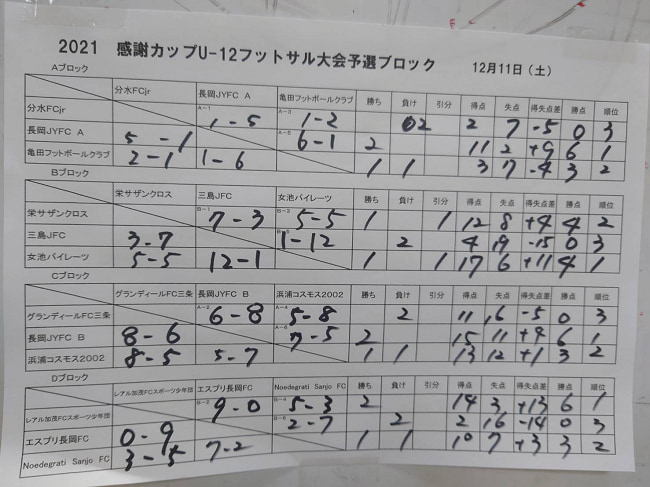 2021 感謝カップU-12フットサル大会予選ブロック 12月11日（土）
Aブロック
分水FCjr 長岡JYFC A 亀田フットボールクラブ 勝ち 負け 引分 得点 失点 得失点差 勝点 順位
分水FCjr A-1 1-5 A-3 1-2 2 2 7 -5 0 3
長岡JYFC A 5-1 A-5 6-1 2 11 2 +9 6 1
亀田フットボールクラブ 2-1 1-6 1 1 3 7 -4 3 2
Bブロック
栄サザンクロス 三島JFC 女池パイレーツ 勝ち 負け 引分 得点 失点 得失点差 勝点 順位
栄サザンクロス B-1 7-3 B-3 5-5 1 1 12 8 +4 4 2
三島JFC 3-7 1-12 2 4 19 -15 0 3
女池パイレーツ 5-5 12-1 1 1 17 6 +11 4 1
Cブロック
グランディールFC三条 長岡JYFC B 浜浦コスモス2002 勝ち 負け 引分 得点 失点 得失点差 勝点 順位
グランディールFC三条 A-2 6-8 A-4 5-8 2 11 16 -5 0 3
長岡JYFC B 8-6 A-6 7-5 2 15 11 +4 6 1
浜浦コスモス2002 8-5 5-7 1 1 13 12 +1 3 2
Dブロック
レアル加茂FCスポーツ少年団 エスプリ長岡FC Noedegrati Sanjo FC 勝ち 負け 引分 得点 失点 得失点差 勝点 順位
レアル加茂FCスポーツ少年団 B-2 9-0 B-4 5-3 2 14 3 +13 6 1
エスプリ長岡FC 0-9 B-6 2-7 2 2 16 -14 0 3
Noedegrati Sanjo FC 3-5 7-2 1 1 10 7 +3 3 2